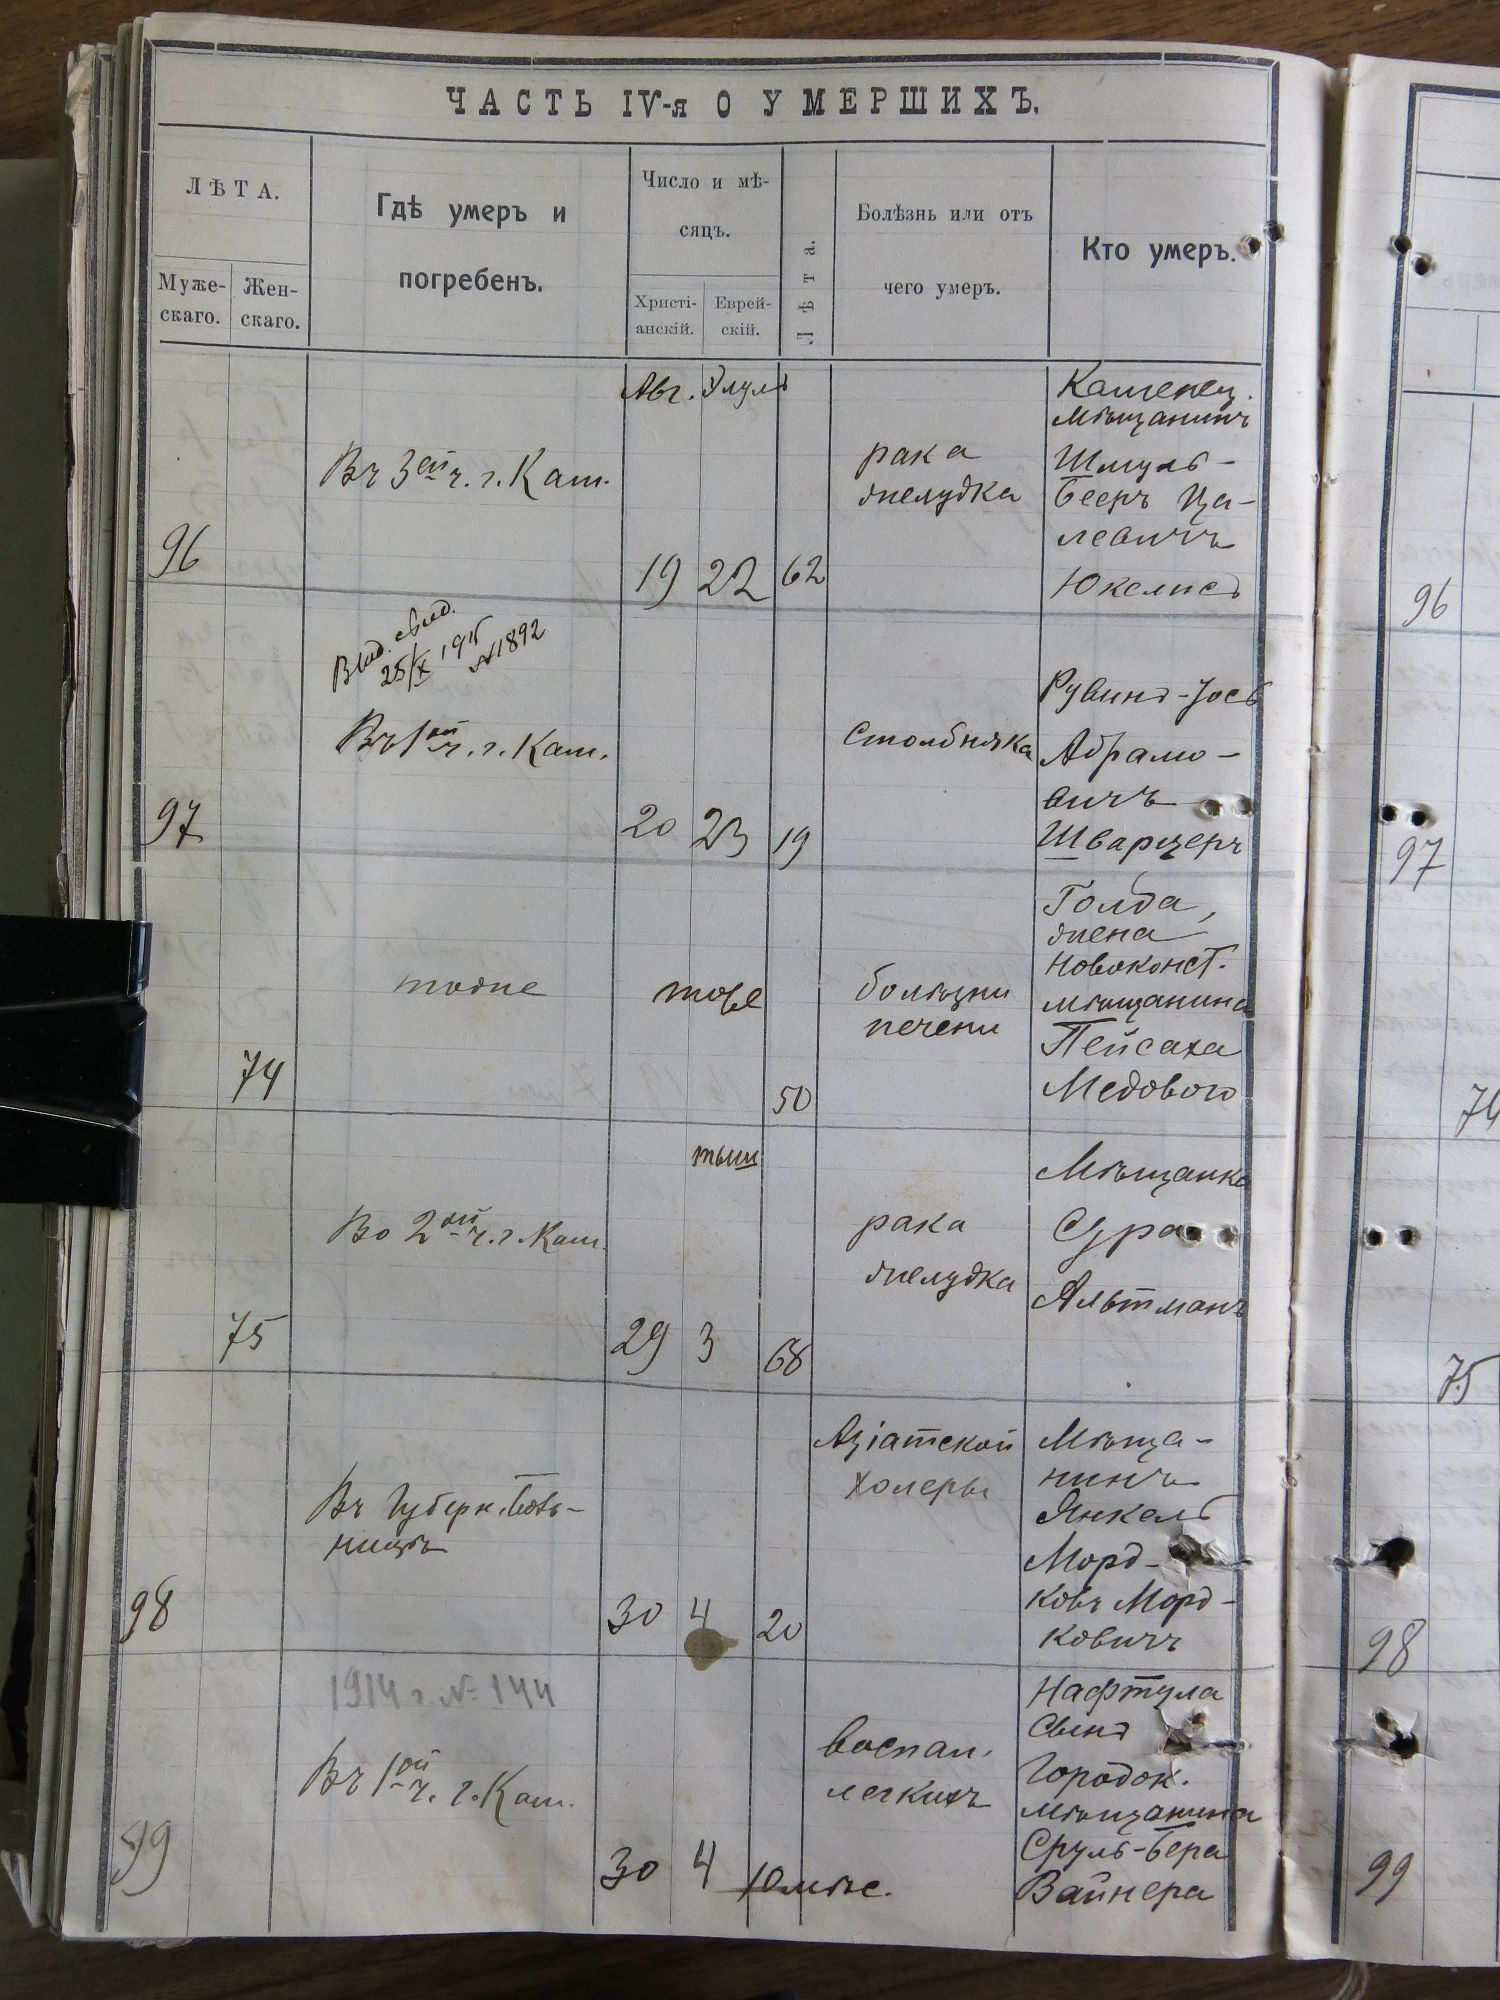 ЧАСТЬ IV-я О УМЕРШИХЪ.
ЛѢТА.
Муже-
скаго.
Жен-
скаго.
Гдѣ умеръ и
погребенъ.
Число и мѣ-
сяцъ.
Христі-
анскій.
Еврей-
скій.
Лѣта.
Болѣзнь или отъ
чего умеръ.
Кто умеръ.
Авг. Элулъ
96
Въ 3ей ч. г. Кам.
19 22 62
рака
желудка
Каменец.
мѣщанинъ
Шмуль-
Бееръ Ца-
левичъ
Юкелисъ
96
Выд. свид.
25/X 1915
№ 1892
97
Въ 1ой ч. г. Кам.
20 23 19
Столбняка
Рувинъ-Іось
Абрамо-
вичъ
Шварцеръ
97
74
тоже
тоже
50
болѣзни
печени
Голда,
жена
новоконст.
мѣщанина
Пейсаха
Медового
74
75
Во 2ой ч. г. Кам.
тыш
29 3 68
рака
желудка
Мѣщанка
Сура
Альтманъ
75
98
Въ Губерн. Боль-
ницѣ
30 4 20
Азіатской
холеры
Мѣща-
нинъ
Янкель
Морд-
ковъ Морд-
ковичъ
98
1914 г. № 144
99
Въ 1ой ч. г. Кам.
30 4 10 мѣс.
воспал.
легкихъ
Нафтула
сынъ
Городок.
мѣщанина
Сруль-Бера
Вайнера
99